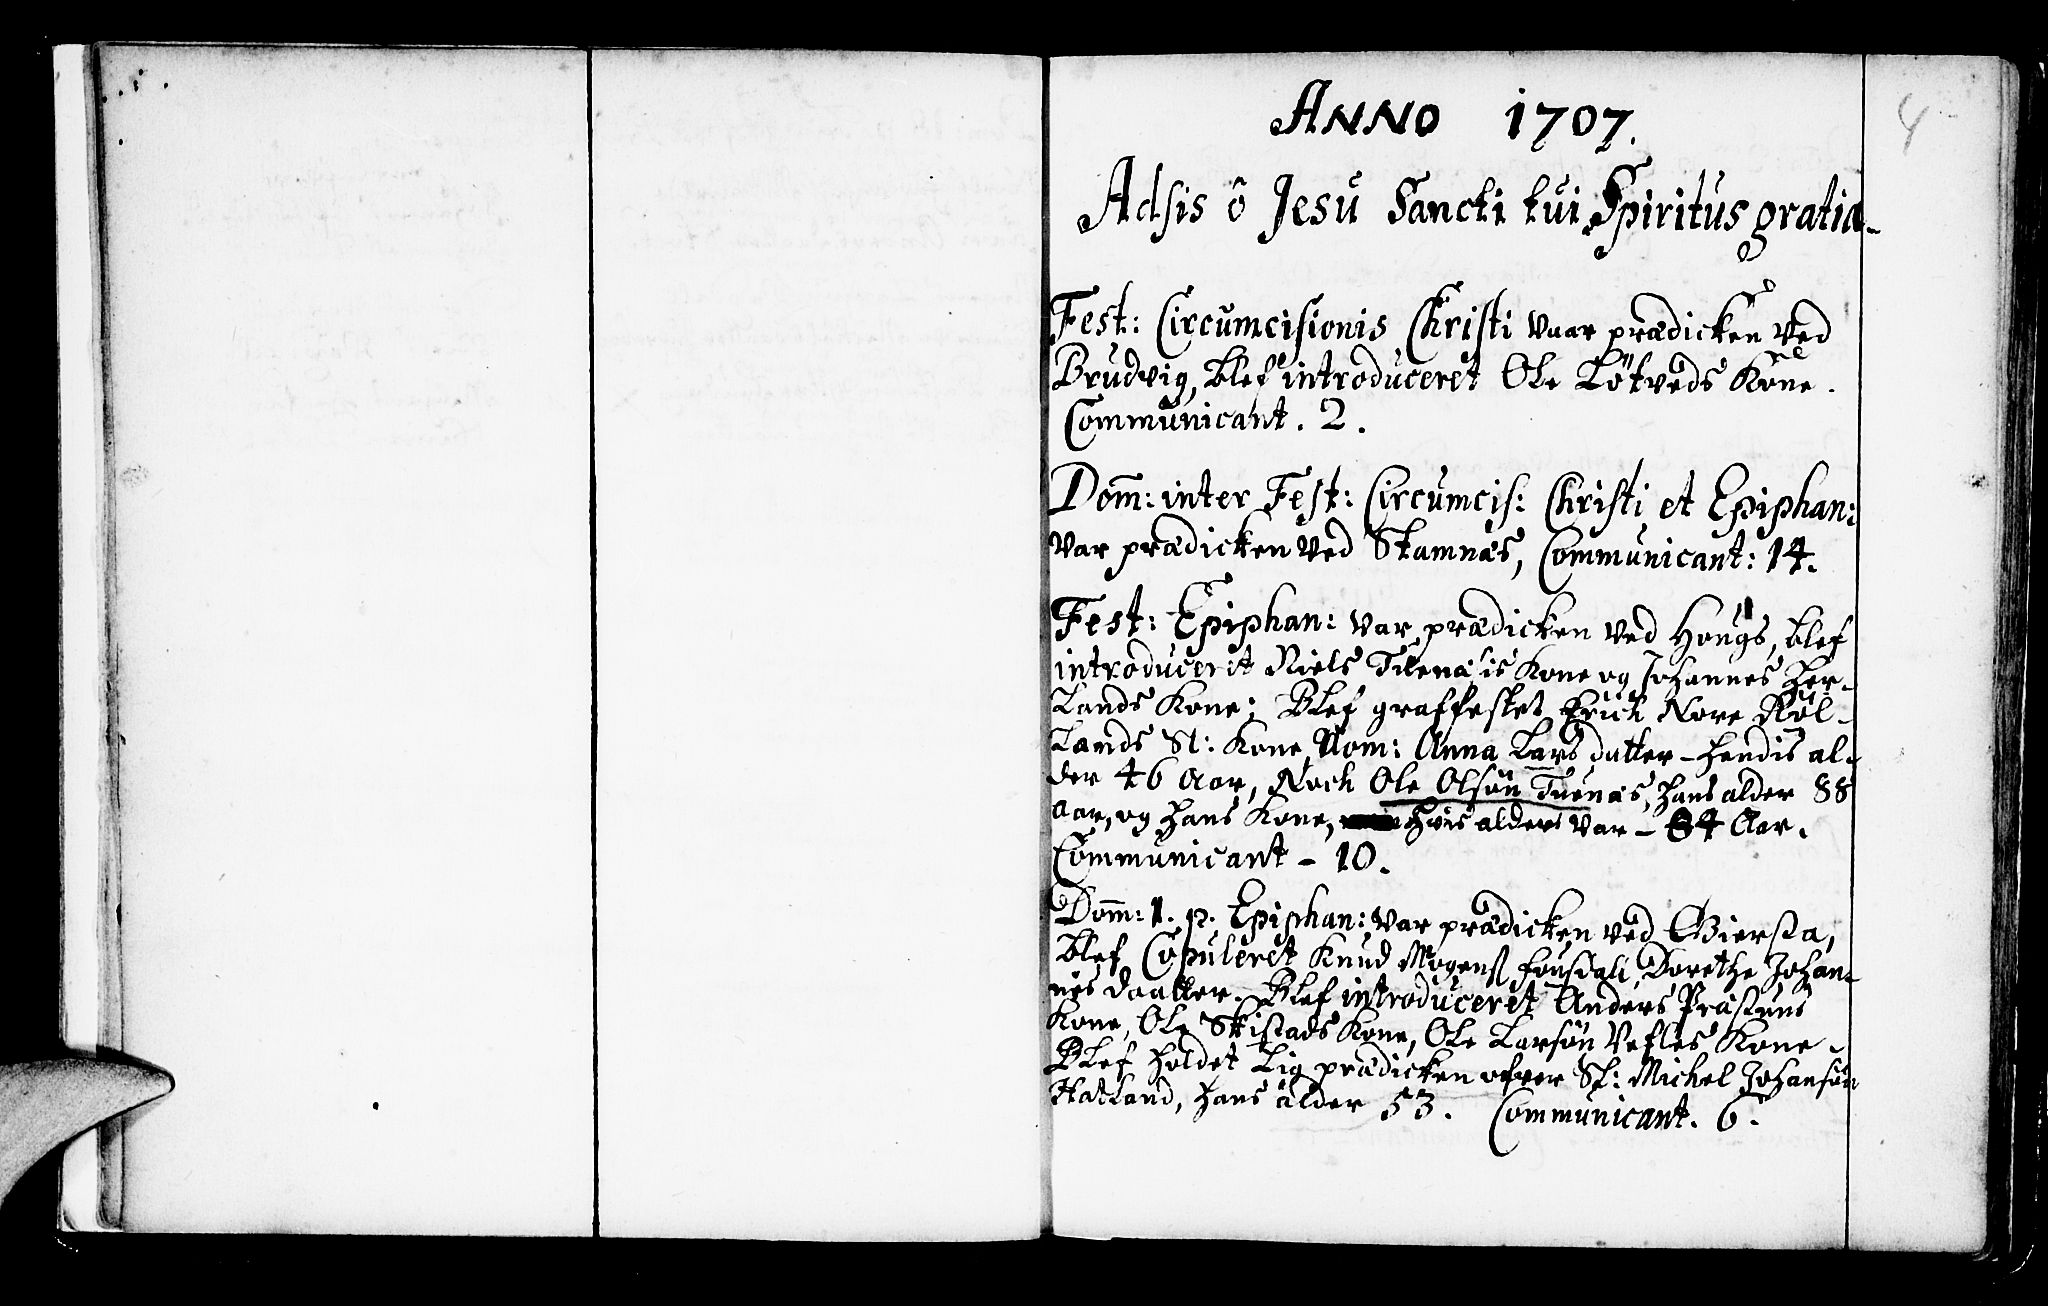 4
ANNO 1707.
Adsis ô Jesu Sancti tui Spiritus gratia.
Fest: Circumcisionis Christi vaar prædicken ved
Brudvig, blef introduceret Ole Løtveds Kone.
Communicant. 2.
Dom̄: inter Fest: Circumcis: Christi et Epiphan:
var prædicken ved Stamnæs, Communicant: 14.
Fest: Epiphan: var prædicken ved Hougs, blef
introducerit Niels Kone og Johannes Her-
lands Kone; Blef graffestet Erich Nore
lands Sl: Kone, Nom: Anna Lars datter - hendis al-
der 46 Aar, Noch Ole Olsøn Tuenæs, hans alder 88
aar, og hans Kone, hvis alder var - 84 Aar.
Communicant - 10.
Dom̄: 1. p. Epiphan: var prædicken ved Gierstad,
blef Copuleret Knud Mogens Dorethe Johan-
nes daatter. Blef introduceret Anders Præstuns
Kone, Ole Skistads Kone, Ole Larsøn Vefles Kone.
Blef holdet Lig prædicken ofver Sl: Michel Johansøn
Hatland, hans alder 53. Communicant. 6.